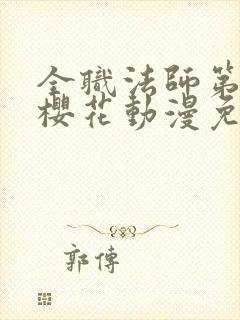 全職法師第
櫻花動漫免
郭傳